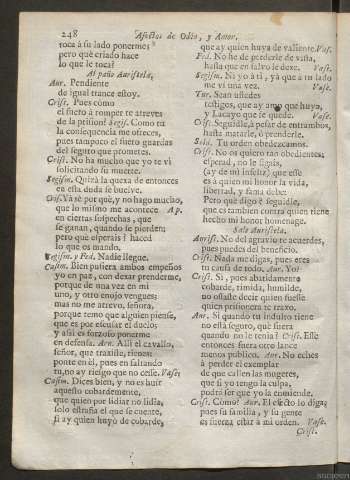 248 Afectos de Odio, y Amor.
toca à su lado ponermes
pero què criado hace
lo que le toca?
Al paño Auristela.
Aur. Pendiente
de igual trance estoy.
Crist. Pues cómo
el fuero à romper te atreves
de la prision? Segis. Como tu
la consequencia me ofreces,
pues tampoco el fuero guardas
del seguro que prometes.
Crist. No ha mucho que yo te vì
solicitando su muerte.
Segism. Quizà la quexa de entonces
en esta duda se buelve.
Cas. Ya sè por què, y no hago mucho,
que lo mismo me acontece Ap.
en ciertas sospechas, que
se ganan, quando se pierden;
pero què esperais? haced
lo que os mando.
Segism. y Fed. Nadie llegue.
Casim. Bien pudiera ambos empeños
yo en paz, con dexar prenderme,
porque de una vez en mi
uno, y otro enojo vengues;
mas no me atrevo, señora,
porque temo que alguien piense,
que es por escusar el duelo;
y assi es forzoso ponerme
en defensa. Arn. Alli el cavallo,
señor, que traxiste, tienes:
ponte en èl, pues en saltando
tu, no ay riesgo que no cesse. Vase.
Casim. Dices bien, y no es huir
aquesto cobardemente,
que quien por lidiar no lidia,
solo estraña el que se cuente,
si ay quien huyò de cobarde,
que ay quien huya de valiente. Vas.
Fed. No he de perderle de vista,
hasta que en salvo le dexe. Vase.
Segism. Ni yo à ti, yà que à tu lado
me vì una vez. Vase.
Tur. Sean ustedes
testigos, que ay amo que huyo,
y Lacayo que se quede. Vase.
Crist. Seguidle, à pesar de entrambos,
hasta matarle, ò prenderle.
Sold. Tu orden obedezcamos.
Crist. No os quiero tan obedientes;
esperad, no le sigais,
(ay de mi infeliz) que esse
es à quien mi honor la vida,
libertad, y fama debe:
Pero què digo è seguidle,
que es tambien contra quien tiene
hecho mi honor homenage.
Sale Auristela.
Aurist. No del agravio te acuerdes,
pues puedes del beneficio.
Crist. Nada me digas, pues eres
tu causa de todo. Aur. Yo?
Crist. Sì, pues abatidamente
cobarde, timida, humilde,
no ossaste decir quien fuesse
quien prisionera te traxo.
Aur. Si quando tu indulto tiene
no està seguro, què fuera
quando no le tenia? Crist. Esse
entonces fuera otro lance
menos publico. Aur. No eches
à perder el exemplar
de que callen las mugeres,
que si yo tengo la culpa,
podrà ser que yo la enmiende.
Crist. Cómo? Aur. El efecto lo diga;
pues su familia, y su gente
es fuerza estàr à mi orden. Vase.
Crist.